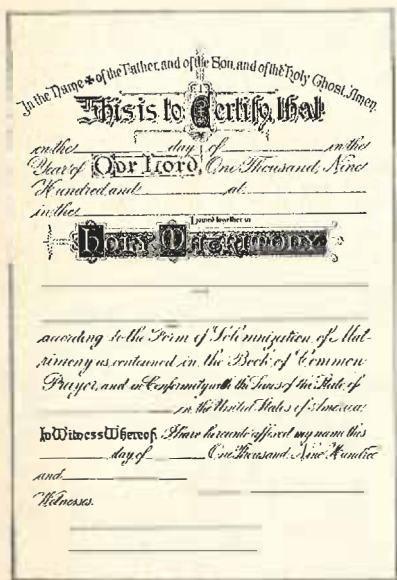 In the Name ✠ of the Father, and of the Son, and of the Holy Ghost. Amen.
This is to Certify, that
on the day of in the
Year of Our Lord, One Thousand, Nine
Hundred and at
in the
I joined together in
Holy Matrimony
and
according to the Form of Solemnization of Mat-
rimony as contained in the Book of Common
Prayer, and in Conformity with the Laws of the State of
in the United States of America.
In Witness Whereof, I have hereunto affixed my name this
day of One Thousand Nine Hundred
and
Witnesses.